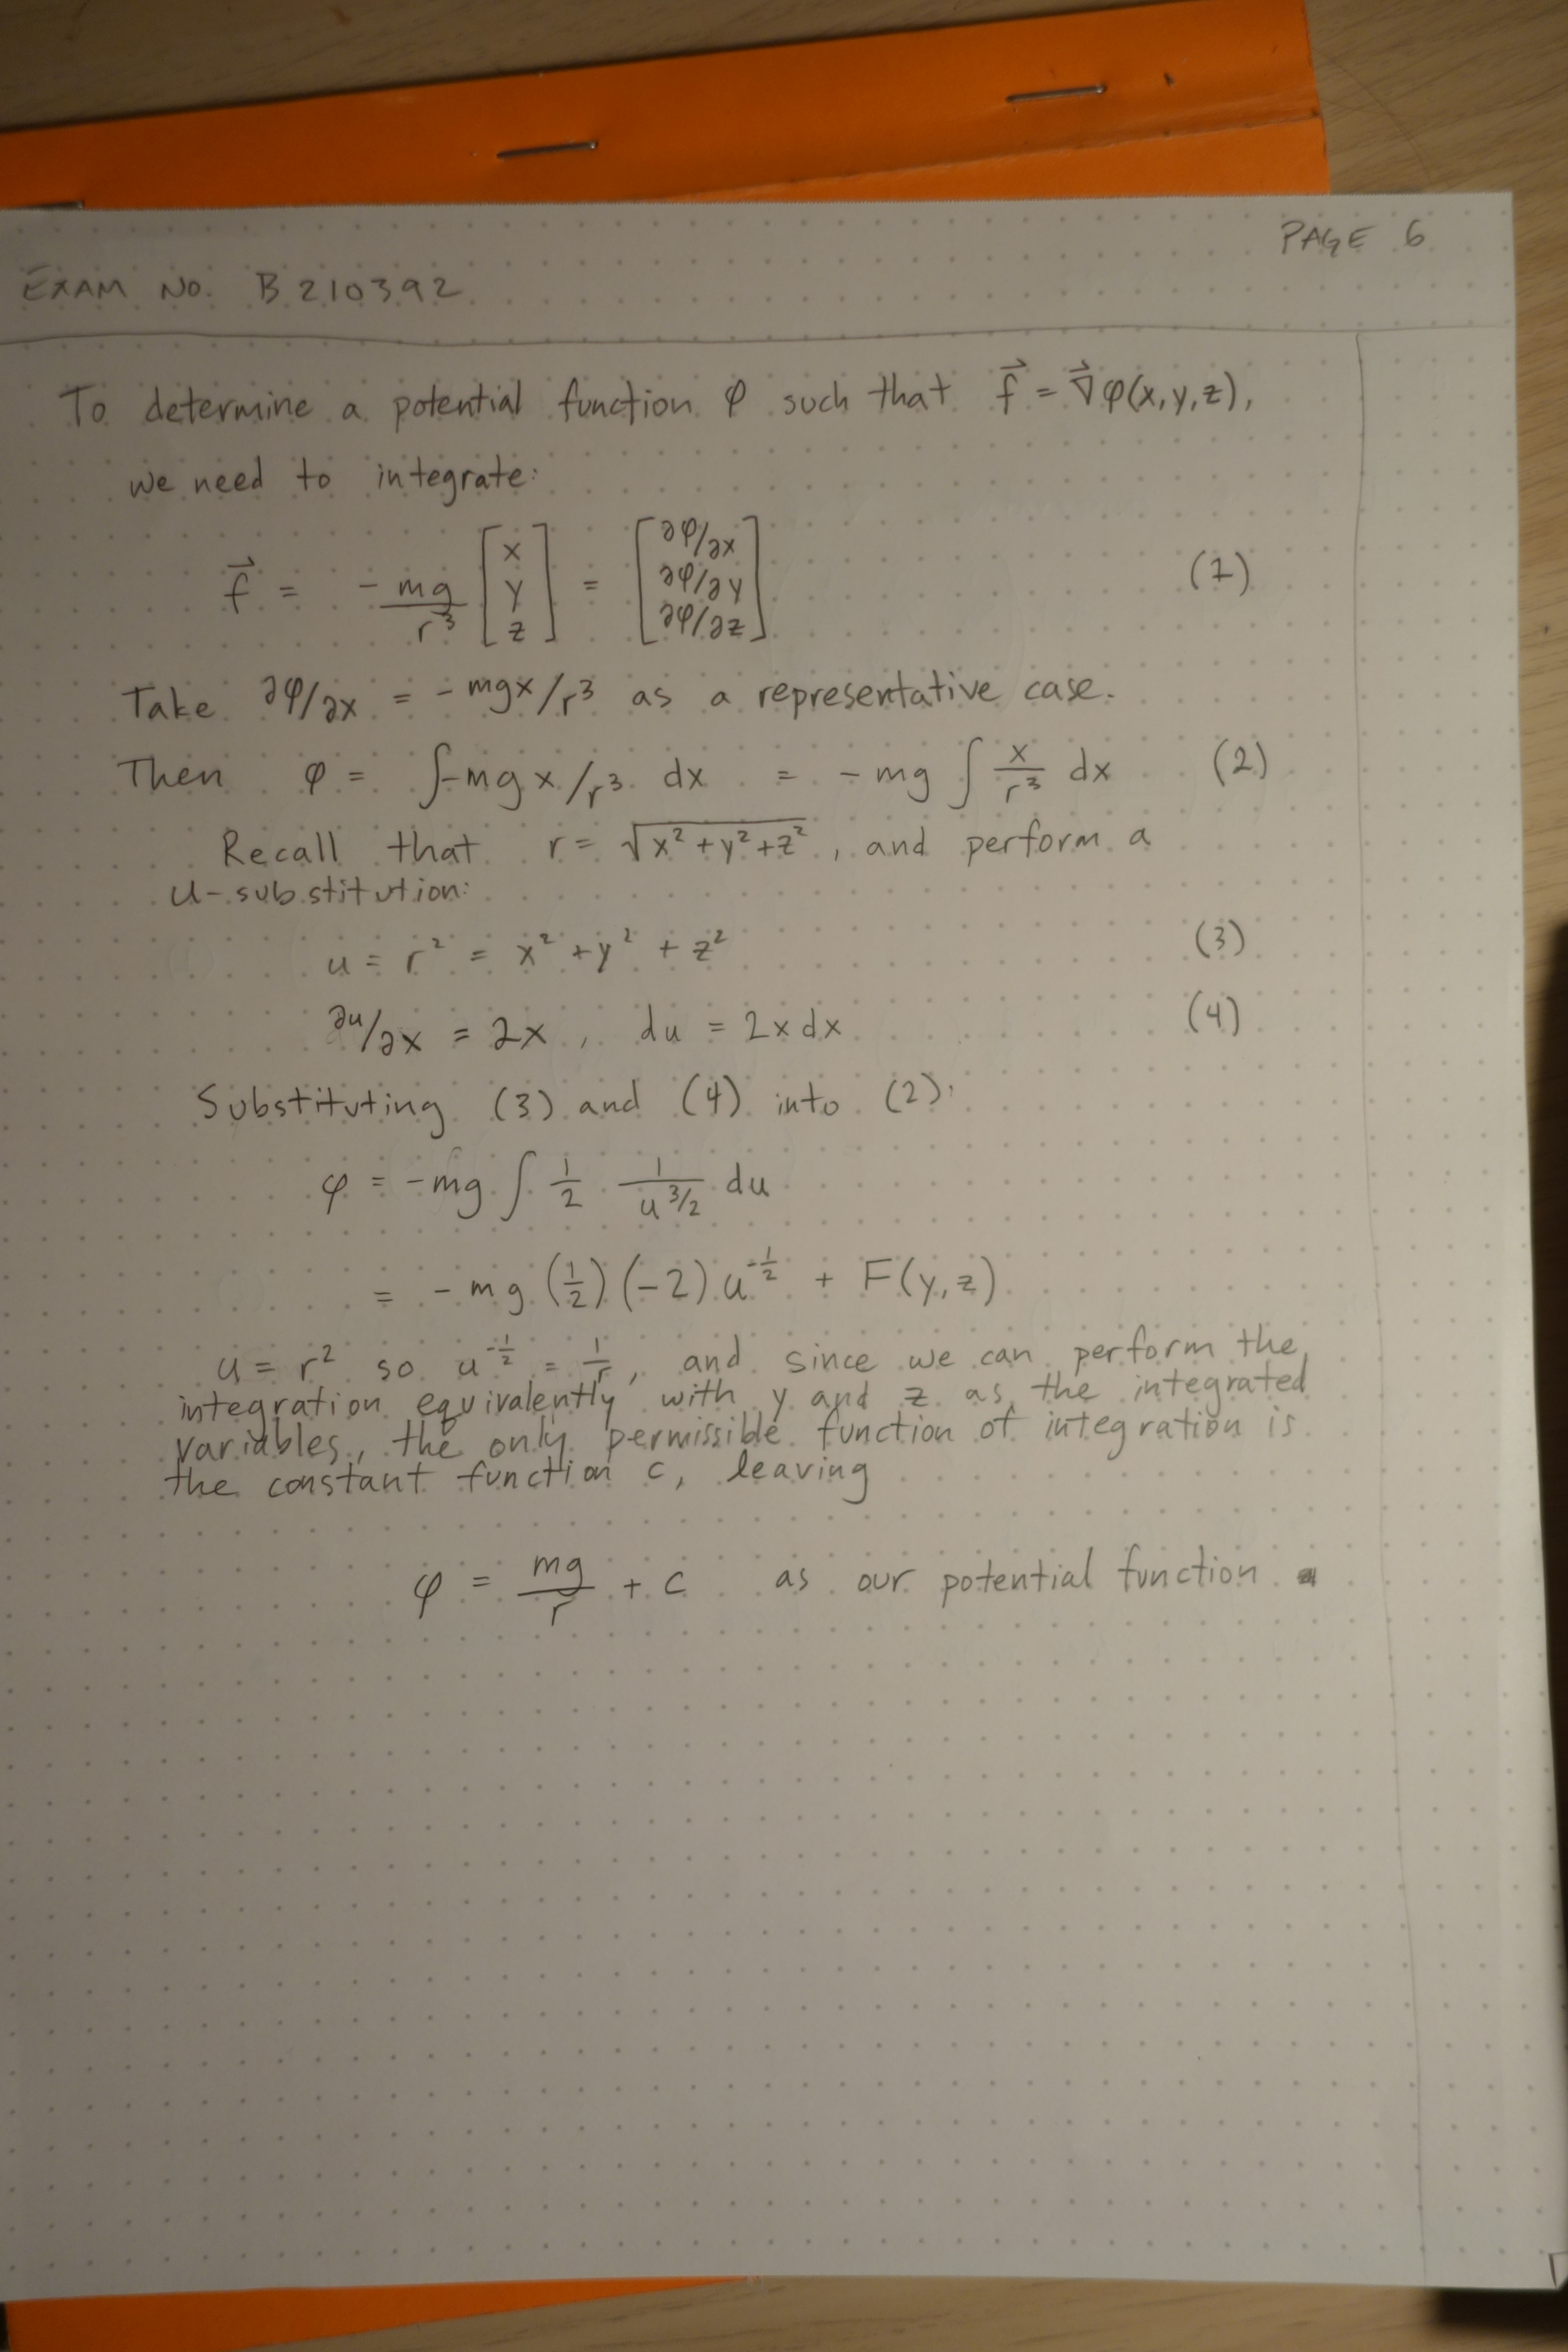 PAGE 6
EXAM NO. B210392
To determine a potential function φ such that f⃗ = ∇⃗φ(x,y,z),
we need to integrate:
f⃗ = -mg/r³ [x y z] = [∂φ/∂x ∂φ/∂y ∂φ/∂z] (1)
Take ∂φ/∂x = -mgx/r³ as a representative case.
Then φ = ∫-mgx/r³ dx = -mg ∫ x/r³ dx (2)
Recall that r = √(x²+y²+z²), and perform a
u-substitution:
u = r² = x² + y² + z² (3)
∂u/∂x = 2x, du = 2x dx (4)
Substituting (3) and (4) into (2):
φ = -mg ∫ 1/2 1/u^(3/2) du
= -mg (1/2)(-2) u^(-1/2) + F(y,z)
u = r² so u^(-1/2) = 1/r, and since we can perform the
integration equivalently with y and z as the integrated
variables, the only permissible function of integration is
the constant function c, leaving
φ = mg/r + c as our potential function